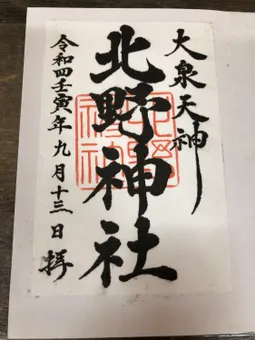 大泉天神
北野神社
令和四壬寅年九月十三日 拝